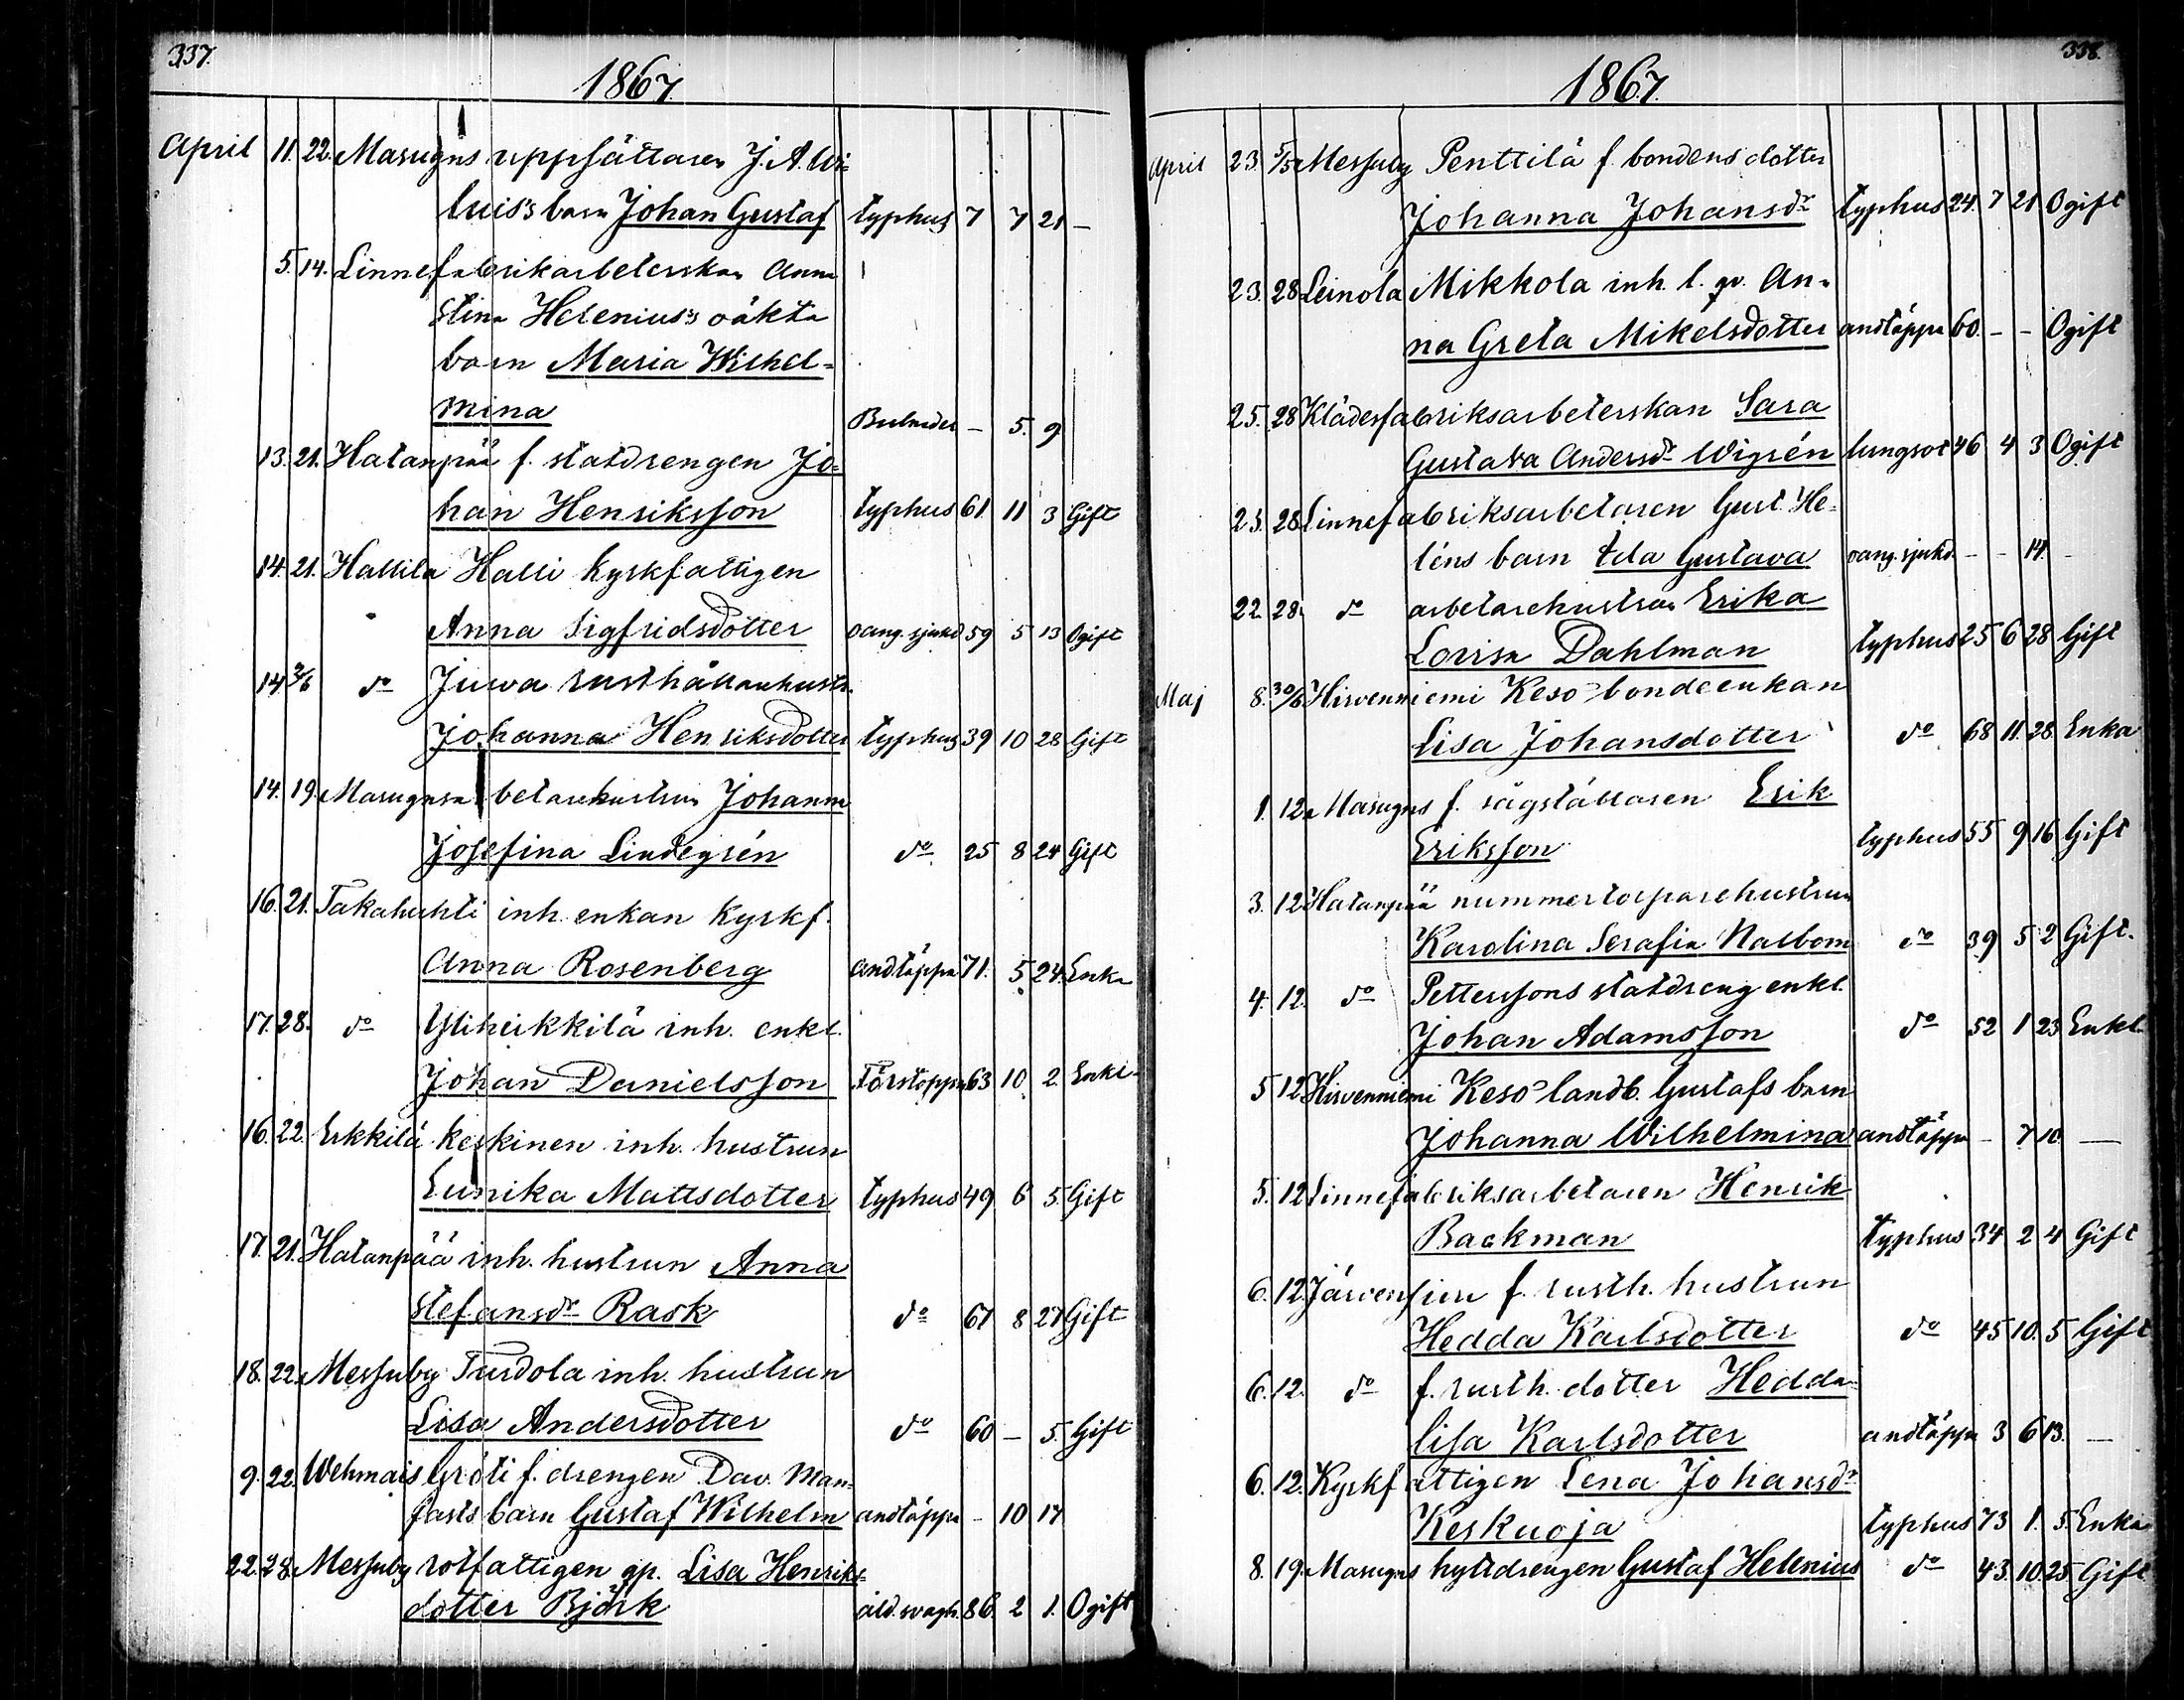 337.
1867.
April 11. 22. Masugns uppsättaren J. A. Wi-
luis's barn Johan Gustaf typhus 7 7 21 -
5. 14. Linnefabrikarbeterskan Anna
Stina Helenius's oäkta
barn Maria Wilhel-
mina - 5. 9
13. 21. Hatanpää f. statdrengen Jo-
han Henriksson typhus 61. 11 3 Gift
14. 21. Hallila Halli kyrkfattigen
Anna Sigfridsdotter oang. sjukd 59 5 13 Ogift
14 2/6 do Juwa rusthållarhustr.
Johanna Henriksdotter typhus 39 10 28 Gift
14. 19. Masugnsarbetarehustrun Johanna
Josefina Lindegrén do 25 8 24 Gift
16. 21. Takahuhti inh. enkan kyrkf.
Anna Rosenberg andtäppa 71. 5 24. Enka
17. 28. do Yliheikkilä inh. enkl.
Johan Danielsson 63 10 2 Enkl.
16. 22. Erkkilä keskinen inh. hustrun
Eunika Mattsdotter typhus 49 6 5. Gift
17. 21. Hatanpää inh. hustrun Anna
Stefansdr Rask do 67 8 27 Gift
18. 22. Messuby Turdola inh. hustrun
Lisa Andersdotter do 60 - 5. Gift
9. 22. Wehmais Gröti f. drengen Dav. Man-
fasts barn Gustaf Wilhelm andtäppa - 10 17
22. 28. Messuby rotfattigen gp. Lisa Henriks-
dotter Björk åld. svagh. 86 2 1. Ogift
338.
1867.
April 23. 5/5 Messuby Penttilä f. bondens dotter
Johanna Johansdr typhus 24. 7 21 Ogift
23. 28 Leinola Mikkola inh. l. qv. An-
na Greta Mikelsdotter andtäppa 60. - - Ogift
25. 28 Klädesfabriksarbeterskan Sara
Gustava Andersdr Wigrén lungsot 46 4 3 Ogift
23. 28 Linnefabriksarbetaren Gust. He-
léns barn Ida Gustava oang. sjukd. - - 14. -
22. 28. do arbetarehustrun Erika
Lovisa Dahlman typhus 25 6 28 Gift
Maj 8. 30/6 Hirvenniemi Keso bondeenkan
Lisa Johansdotter do 68 11. 28. Enka
1. 12. Masugns f. sågställaren Erik
Eriksson typhus 55 9 16 Gift
3. 12 Hatanpää nummertorparehustrun
Karolina Serafia Nalbom do 39 5 2 Gift.
4. 12. do Petterssons statdreng enkl.
Johan Adamsson do 52 1 23 Enkl.
5 12 Hirvenniemi Keso landb. Gustafs barn
Johanna Wilhelmina andtäppa - 7 10 -
5. 12 Linnefabriksarbetaren Henrik
Backman typhus 34 2 4 Gift
6. 12 Järvensivu f. rusth. hustrun
Hedda Karlsdotter do 45 10. 5 Gift
6. 12. do f. rusth. dotter Hedda
Lisa Karlsdotter andtäppa 3 6 13. -
6. 12. Kyrkfattigen Lena Johansdr
Keskuoja typhus 73 1. 5. Enka
8. 19. Masugns hyttdrengen Gustaf Helenius do 43. 10. 25 Gift